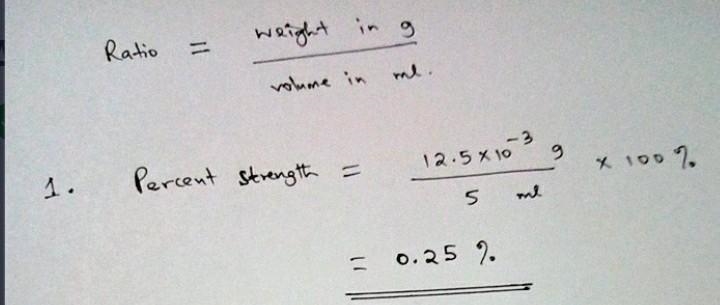 Ratio = weight in g / volume in ml.
1. Percent strength = 12.5 × 10⁻³ g / 5 ml × 100 %
= 0.25 %